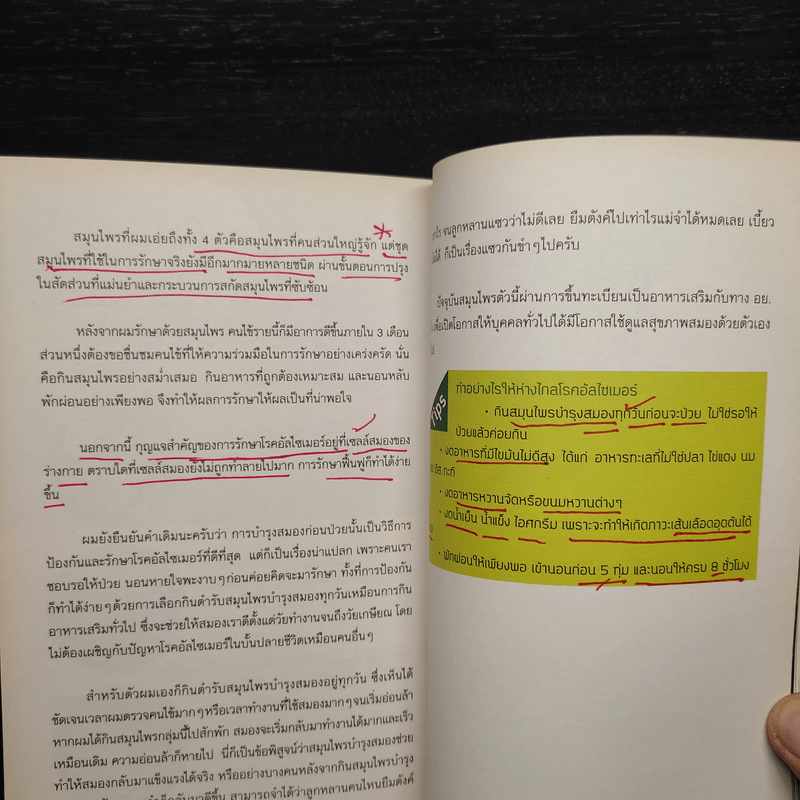 สมุนไพรที่ผมเอ่ยถึงทั้ง 4 ตัวคือสมุนไพรที่คนส่วนใหญ่รู้จัก แต่ชุด
สมุนไพรที่ใช้ในการรักษาจริงยังมีอีกมากมายหลายชนิด ผ่านขั้นตอนการปรุง
ในสัดส่วนที่แม่นยำและกระบวนการสกัดสมุนไพรที่ซับซ้อน
หลังจากผมรักษาด้วยสมุนไพร คนไข้รายนี้ก็มีอาการดีขึ้นภายใน 3 เดือน
ส่วนหนึ่งต้องขอชื่นชมคนไข้ที่ให้ความร่วมมือในการรักษาอย่างเคร่งครัด นั่น
คือกินสมุนไพรอย่างสม่ำเสมอ กินอาหารที่ถูกต้องเหมาะสม และนอนหลับ
พักผ่อนอย่างเพียงพอ จึงทำให้ผลการรักษาให้ผลเป็นที่น่าพอใจ
นอกจากนี้ กุญแจสำคัญของการรักษาโรคอัลไซเมอร์อยู่ที่เซลล์สมองของ
ร่างกาย ตราบใดที่เซลล์สมองยังไม่ถูกทำลายไปมาก การรักษาฟื้นฟูก็ทำได้ง่าย
ขึ้น
ผมยังยืนยันคำเดิมนะครับว่า การบำรุงสมองก่อนป่วยนั้นเป็นวิธีการ
ป้องกันและรักษาโรคอัลไซเมอร์ที่ดีที่สุด แต่ก็เป็นเรื่องน่าแปลก เพราะคนเรา
ชอบรอให้ป่วย นอนหายใจพะงาบๆก่อนค่อยคิดจะมารักษา ทั้งที่การป้องกัน
ก็ทำได้ง่ายๆด้วยการเลือกกินตำรับสมุนไพรบำรุงสมองทุกวันเหมือนการกิน
อาหารเสริมทั่วไป ซึ่งจะช่วยให้สมองเราดีตั้งแต่วัยทำงานจนถึงวัยเกษียณ โดย
ไม่ต้องเผชิญกับปัญหาโรคอัลไซเมอร์ในบั้นปลายชีวิตเหมือนคนอื่นๆ
สำหรับตัวผมเองก็กินตำรับสมุนไพรบำรุงสมองอยู่ทุกวัน ซึ่งเห็นได้
ชัดเจนเวลาผมตรวจคนไข้มากๆหรือเวลาทำงานที่ใช้สมองมากๆจนเริ่มอ่อนล้า
หากผมได้กินสมุนไพรกลุ่มนี้ไปสักพัก สมองจะเริ่มกลับมาทำงานได้มากและเร็ว
เหมือนเดิม ความอ่อนล้าก็หายไป นี่ก็เป็นข้อพิสูจน์ว่าสมุนไพรบำรุงสมองช่วย
ทำให้สมองกลับมาแข็งแรงได้จริง หรืออย่างบางคนหลังจากกินสมุนไพรบำรุง
สามารถจำได้ว่าลูกหลานคนไหนยืมตังค์
จนลูกหลานแซวว่าไม่ดีเลย ยืมตังค์ไปเท่าไรแม่จำได้หมดเลย เบี้ยว
ไม่ได้ ก็เป็นเรื่องแซวกันขำๆไปครับ
ปัจจุบันสมุนไพรตัวนี้ผ่านการขึ้นทะเบียนเป็นอาหารเสริมกับทาง อย.
เพื่อเปิดโอกาสให้บุคคลทั่วไปได้มีโอกาสใช้ดูแลสุขภาพสมองด้วยตัวเอง
Tips
ทำอย่างไรให้ห่างไกลโรคอัลไซเมอร์
• กินสมุนไพรบำรุงสมองทุกวันก่อนจะป่วย ไม่ใช่รอให้
ป่วยแล้วค่อยกิน
• งดอาหารที่มีไขมันไม่ดีสูง ได้แก่ อาหารทะเลที่ไม่ใช่ปลา ไข่แดง นม
ชีส กะทิ
• งดอาหารหวานจัดหรือขนมหวานต่างๆ
• งดน้ำเย็น น้ำแข็ง ไอศกรีม เพราะจะทำให้เกิดภาวะเส้นเลือดอุดตันได้
• พักผ่อนให้เพียงพอ เข้านอนก่อน 5 ทุ่ม และนอนให้ครบ 8 ชั่วโมง